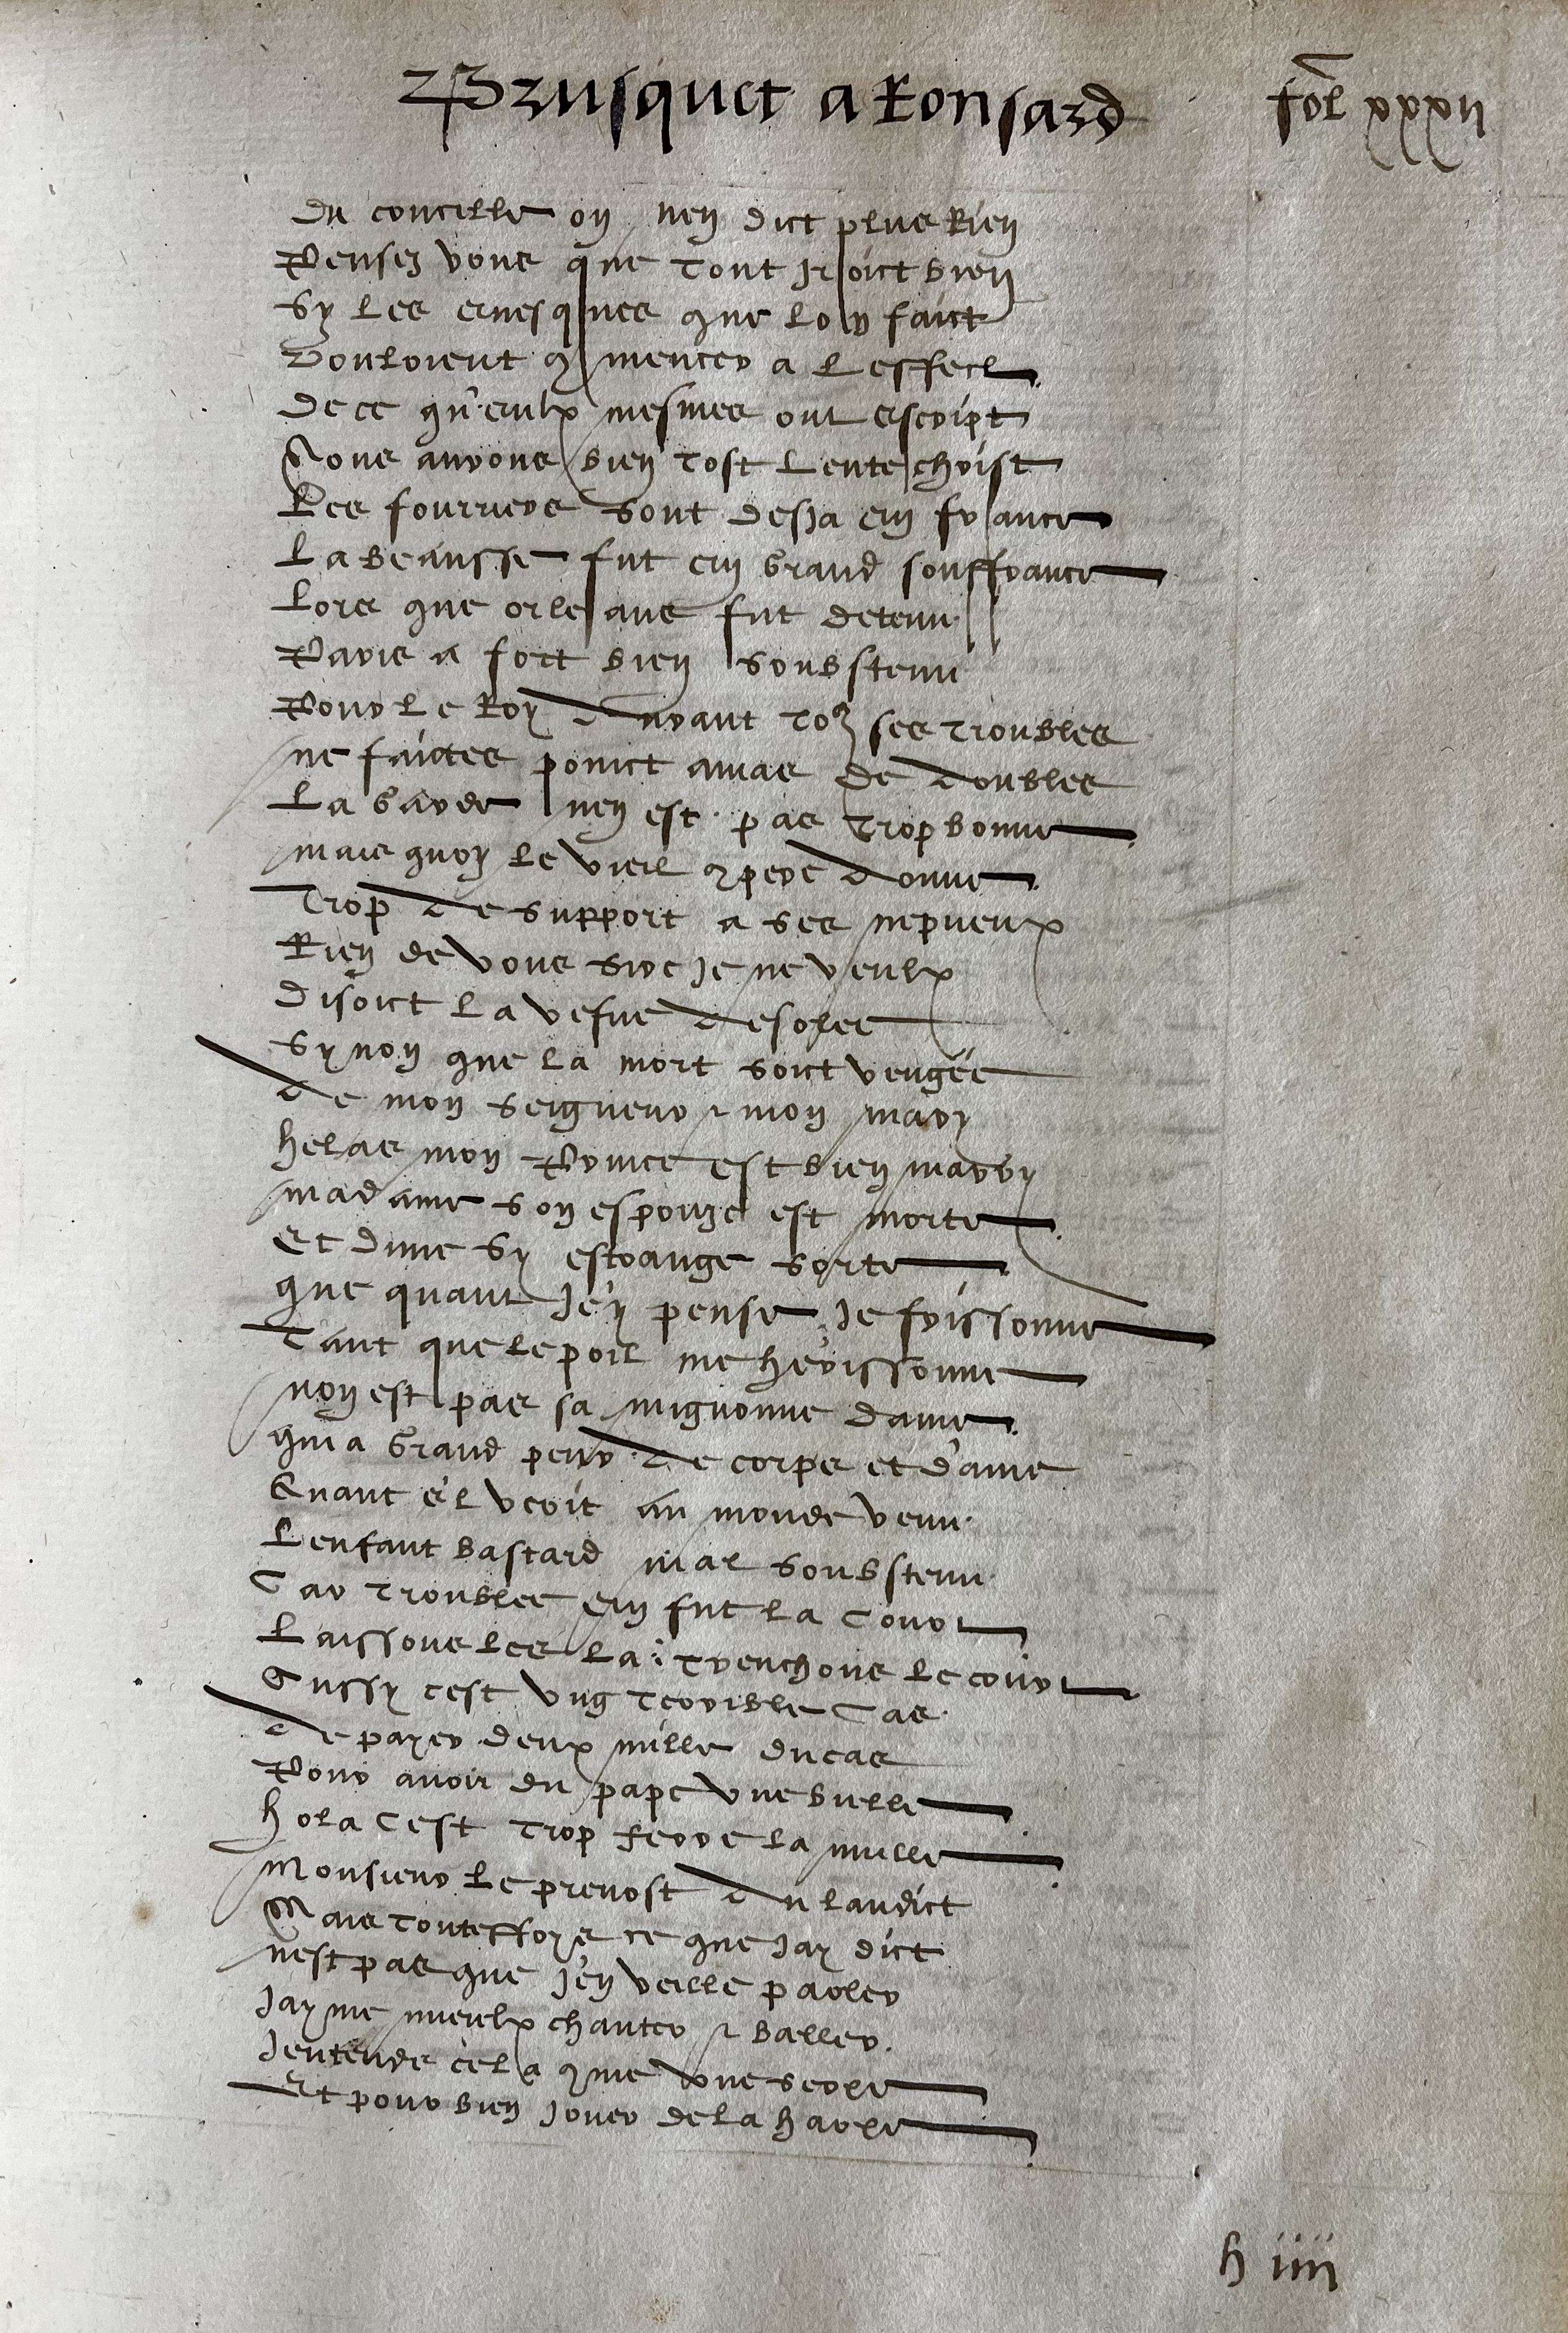 Brusquet a Ronsard
fol xxxii
Du concille on nen dict plus Rien
Pensez vous que tout Iroict bien
Sy les evesques que lon faict
Vouloient 9mencer a leffect
De ce qu'eulx mesmes ont escript
Nous aurons bien tost lentechrist
Les fourriers sont desja en france
La beausse fut en grand souffrance
Lors que orleans fut detenu
Paris a fort bien soubstenu
Pour le Roy durant to9 ses troubles
ne faictes poinct amas de doubles
La garde nen est pas trop bonne
mais quoy le vieil 9pere donne
Trop de support a ses nepveux
Rien de vous sire je ne veulx
Disoict la vefue desolee
Synon que la mort soict vengée
de mon seigneur & mon mary
helas mon Prince est bien marry
madame son espouze est morte
Et dune sy estrange sorte
que quant Je'y pense Je frissonne
Tant que le poil me hérissonne
non est pas sa mignonne dame
qui a grand peur de corps et d'ame
Quant e'l veoit au monde venu
Lenfant bastard mal soubstenu
Car troublee en fut la Court
Laissons les la: trenchons le court
Aussy cest ung terrible Cas
de payer deux mille ducas
Pour avoir du pape une bulle
hola Cest trop ferre la mulle
Monsieur le prevost du landict
Mais touteffoys ce que Jay dict
nest pas que J'en veille parler
Jayme mieulx chanter & baller
Jentends cela 9me une serpe
Et pour bien Jouer de la harpe
h iiii